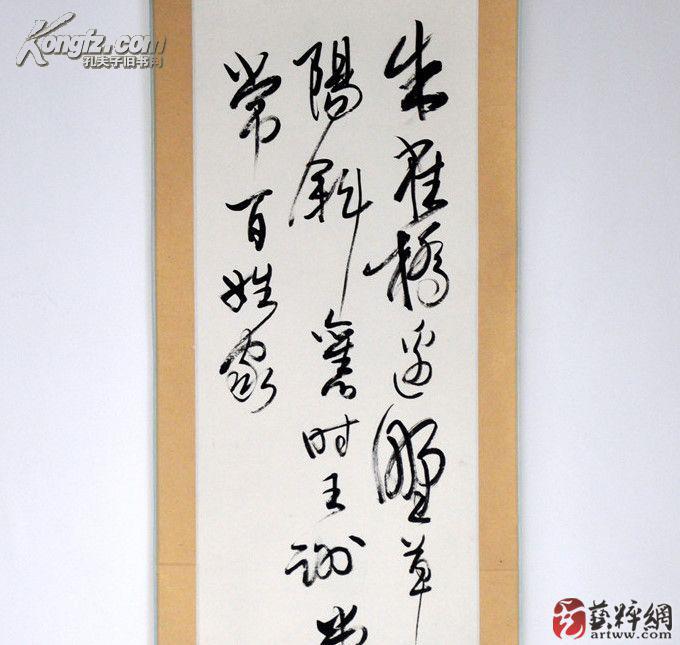 朱雀橋邊野草
陽斜舊时王謝
常百姓家
Kongfz.com
孔夫子旧书网
藝粹網
artww.com